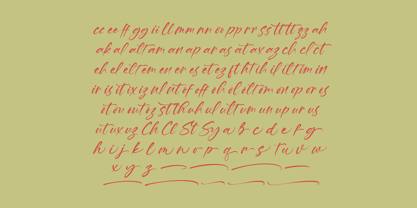 cc ee ff gg ii ll mm nn oo pp rr ss tt tt zz ah
ak al alt am an ap ar as at ax az ch cl ct
ch el elt em en er es et ez ft ht ih if il ilt im in
ir is it ix iz nl nt of off oh ol olt em on op or os
ot ov out oz sth uh ul ult um un up ur us
ut ux uz Ch Cl St Sy a b c d e f g
h i j k l m n o p q r s t u v w
x y z